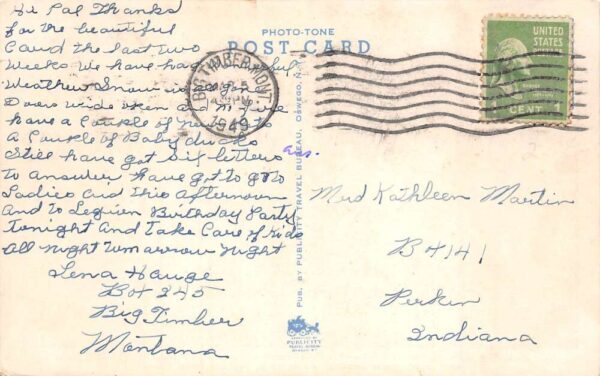 Hi Pal Thanks
for the beautiful
Card the last two
Weeks we have had
Weather Snow
Doors wide open and
have a Couple of to
A Couple of Baby ducks
Still have got six letters
To answer have got to go to
Ladies Aid this Afternoon
And to Legion Birthday Party
Tonight And Take Care of Kids
All Night Tomorrow Night
Lena Hauge
BOX 245
Big Timber
Montana
PHOTO-TONE
POST CARD
BIG TIMBER, MONT.
1949
UNITED
STATES
POSTAGE
CENT 1
ans.
PUB. BY PUBLICITY TRAVEL BUREAU, OSWEGO, N.Y.
PUBLICITY
Kathleen Martin
BX 141
Perkin
Indiana